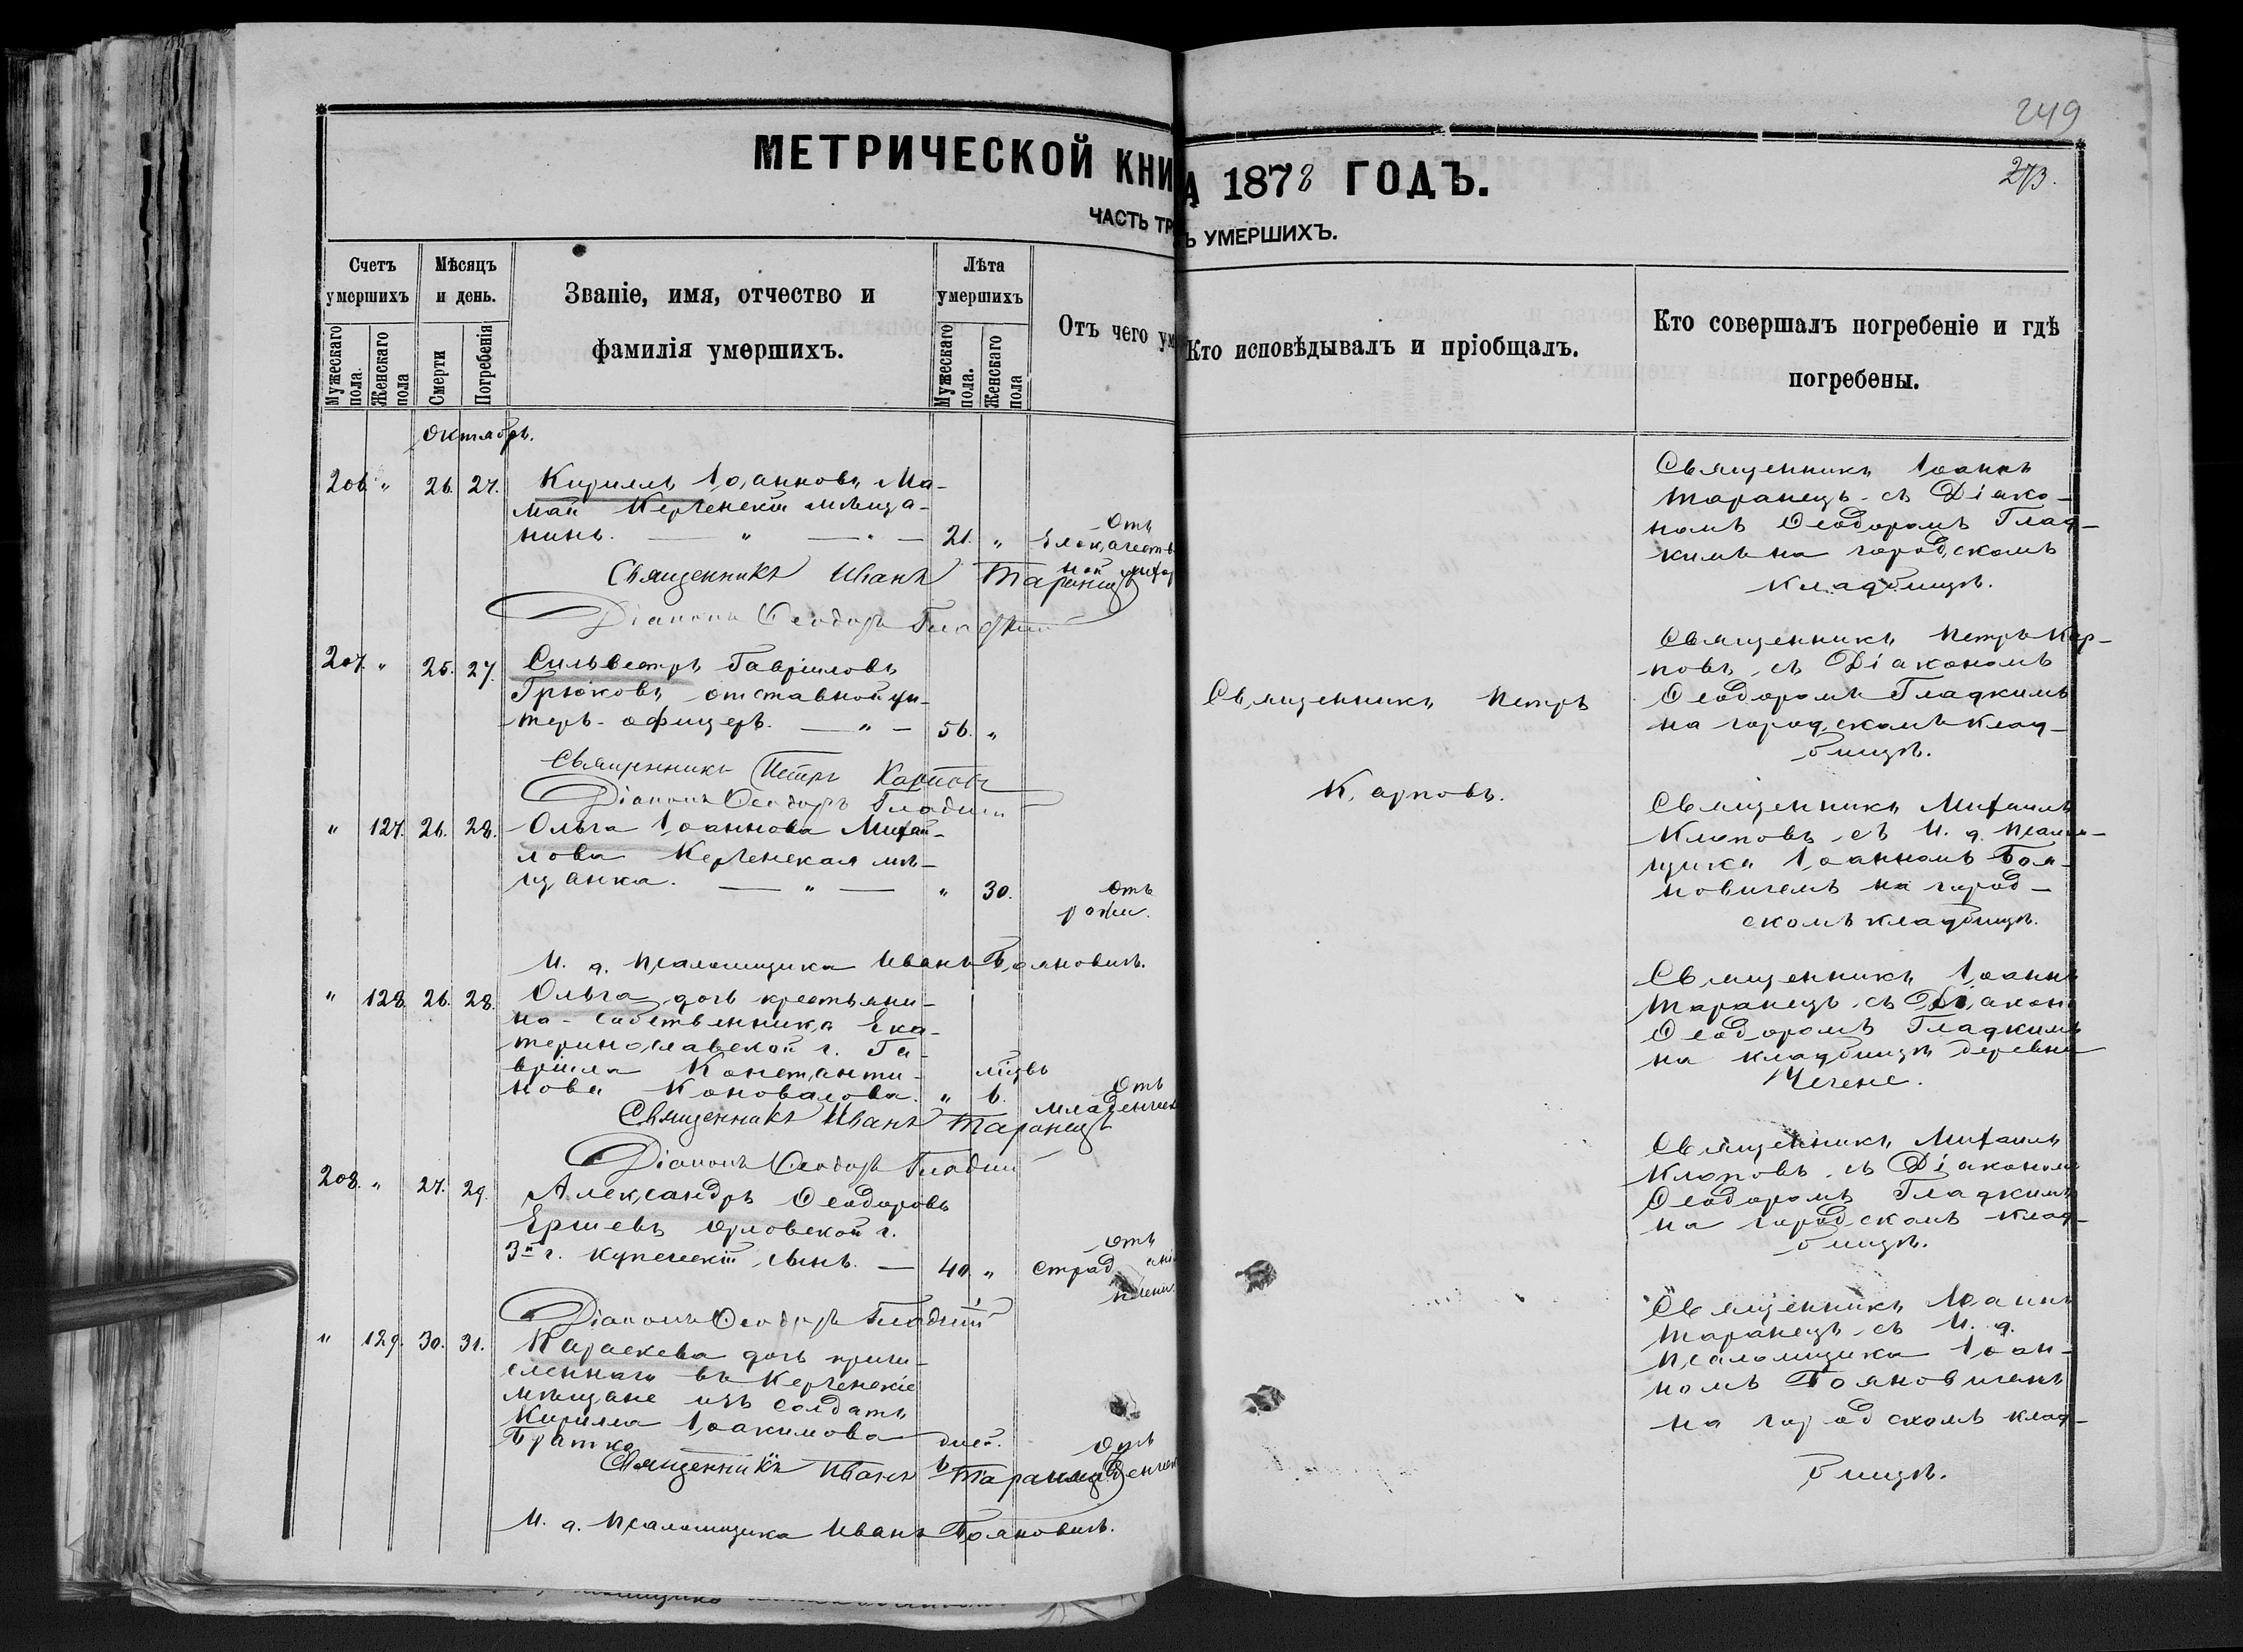 249
273.
МЕТРИЧЕСКОЙ КНИ
А 1878 ГОДЪ.
ЧАСТЬ ТР
Ъ УМЕРШИХЪ.
Счетъ умершихъ
Мужескаго пола.
Женскаго пола
Мѣсяцъ и день.
Смерти
Погребенія
Званіе, имя, отчество и
фамилія умершихъ.
Лѣта умершихъ
Мужескаго пола.
Женскаго пола
Отъ чего ум
Кто исповѣдывалъ и пріобщалъ.
Кто совершалъ погребеніе и гдѣ
погребены.
Октябрь.
206. " 26. 27.
Кириллъ Іоанновъ Ма-
май Керченскій мѣща-
нинъ. — " — 21. "
Отъ
Священникъ Иванъ Таранецъ
Діаконъ Ѳеодоръ Гладкий
Священникъ Іоаннъ
Таранецъ съ Діако-
номъ Ѳеодоромъ Глад-
кимъ на городскомъ
кладбищѣ.
207. " 25. 27.
Сильвестръ Гавріиловъ
Грюковъ отставной ун-
теръ-офицеръ. — " — 56. "
Священникъ Петръ Карповъ
Діаконъ Ѳеодоръ Гладкий
Священникъ Петръ
Карповъ.
Священникъ Петръ Кар-
повъ съ Діакономъ
Ѳеодоромъ Гладкимъ
на городскомъ клад-
бищѣ.
" 127. 26. 28.
Ольга Іоаннова Михай-
лова Керченская мѣ-
щанка. — " — " 30.
Отъ
И. д. псаломщика Иванъ Бояновичъ.
Священникъ Михаилъ
Клоповъ съ И. д. псалом-
щика Іоанномъ Боя-
новичемъ на город-
скомъ кладбищѣ.
" 128. 26. 28.
Ольга дочь крестьяни-
на-собственника Ека-
теринославской г. Га-
вріила Константи-
нова Коновалова. " 6.
Отъ
младенческ
Священникъ Иванъ Таранецъ
Діаконъ Ѳеодоръ Гладкий
Священникъ Іоаннъ
Таранецъ съ Діакон
Ѳеодоромъ Гладкимъ
на кладбищѣ деревни
208. " 27. 29.
Александръ Ѳеодоровъ
Ершевъ Орловской г.
3й г. купеческій сынъ. — 40. "
Отъ
страданія
Діаконъ Ѳеодоръ Гладкий
Священникъ Михаилъ
Клоповъ съ Діакономъ
Ѳеодоромъ Гладкимъ
на городскомъ клад-
бищѣ.
" 129. 30. 31.
Параскева дочь причи-
сленнаго въ Керченскіе
мѣщане изъ солдатъ
Кирилла Іоакимова
Братко
дней.
6
Отъ
Священникъ Иванъ Таранецъ
И. д. псаломщика Иванъ Бояновичъ.
Священникъ Іоаннъ
Таранецъ съ И. д.
псаломщика Іоан-
номъ Бояновичемъ
на городскомъ клад-
бищѣ.